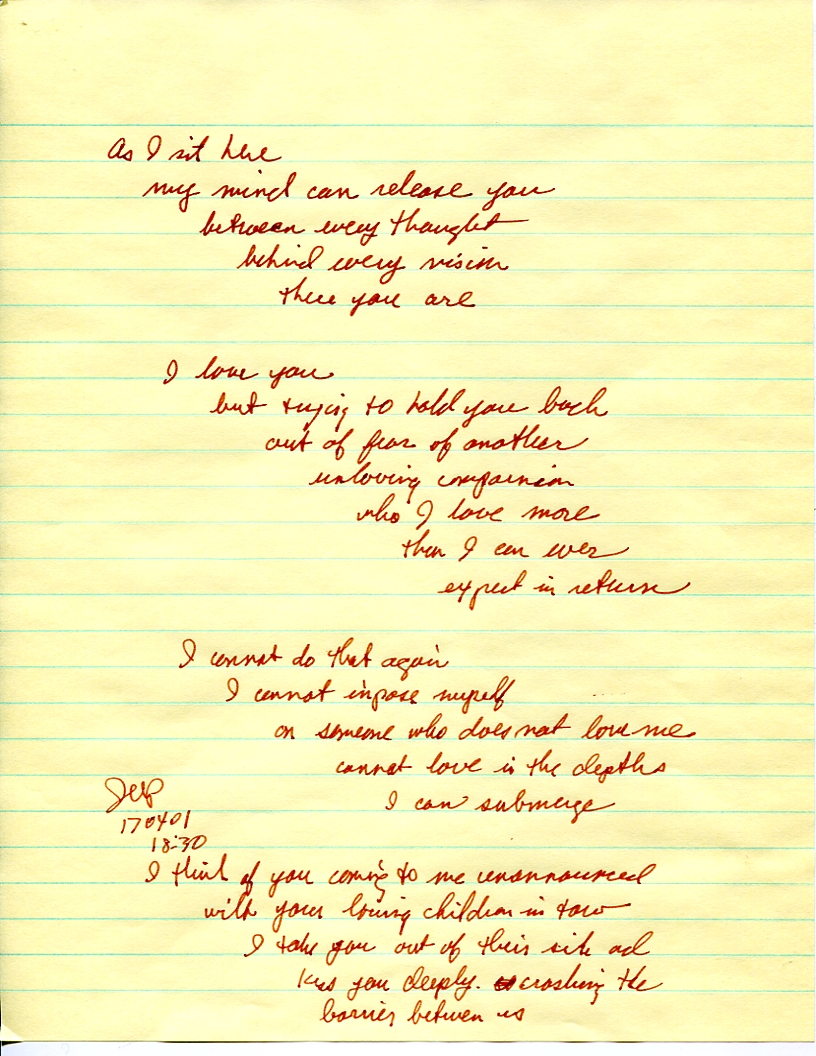 As I sit here
my mind can release you
between every thought
behind every vision
there you are
I love you
but trying to hold you back
out of fear of another
unloving companion
who I love more
than I can ever
expect in return
I cannot do that again
I cannot inpose myself
on someone who does not love me
cannot love in the depths
I can submerge
170401
18:30
I think of you coming to me unannounced
with your loving children in tow
I take you out of their site ad
kiss you deeply. crashing the
barrier between us